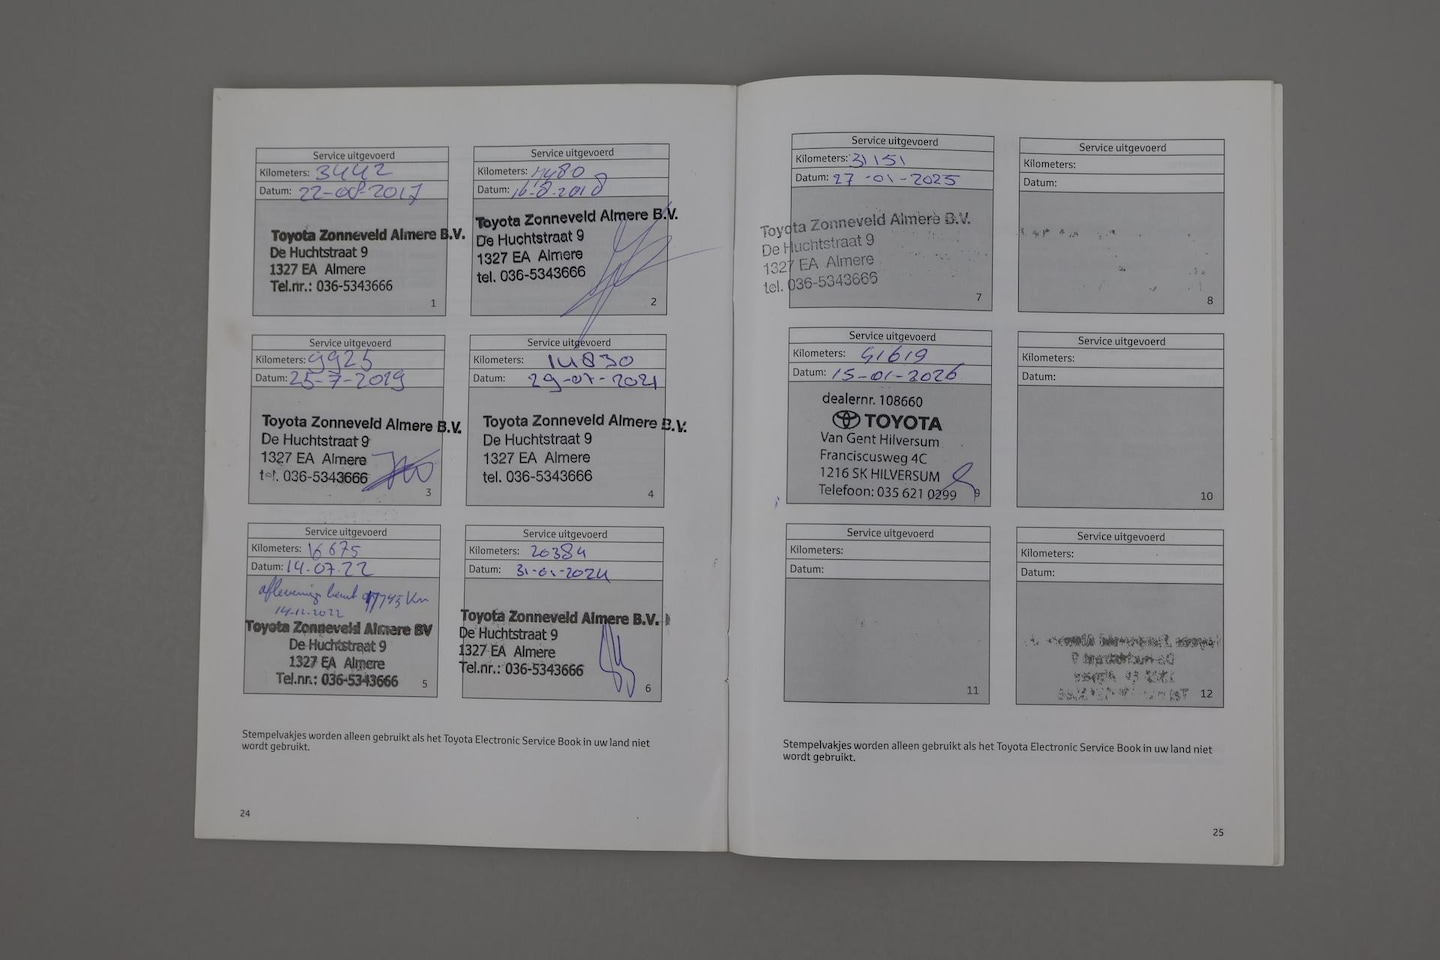 Service uitgevoerd
Kilometers: 3442
Datum: 22-08-2017
Toyota Zonneveld Almere B.V.
De Huchtstraat 9
1327 EA Almere
Tel.nr.: 036-5343666
1
Service uitgevoerd
Kilometers:
Datum: 16-8-2018
Toyota Zonneveld Almere B.V.
De Huchtstraat 9
1327 EA Almere
tel. 036-5343666
2
Service uitgevoerd
Kilometers: 9925
Datum: 25-7-2019
Toyota Zonneveld Almere B.V.
De Huchtstraat 9
1327 EA Almere
tel. 036-5343666
3
Service uitgevoerd
Kilometers: 14830
Datum: 29-07-2021
Toyota Zonneveld Almere B.V.
De Huchtstraat 9
1327 EA Almere
tel. 036-5343666
4
Service uitgevoerd
Kilometers: 16675
Datum: 14.07.22
14-12-2022
Toyota Zonneveld Almere BV
De Huchtstraat 9
1327 EA Almere
Tel.nr.: 036-5343666
5
Service uitgevoerd
Kilometers: 20384
Datum: 31-01-2024
Toyota Zonneveld Almere B.V.
De Huchtstraat 9
1327 EA Almere
Tel.nr.: 036-5343666
6
Stempelvakjes worden alleen gebruikt als het Toyota Electronic Service Book in uw land niet
wordt gebruikt.
24
Service uitgevoerd
Kilometers: 31151
Datum: 27-01-2025
Toyota Zonneveld Almere B.V.
De Huchtstraat 9
1327 EA Almere
tel. 036-5343666
7
Service uitgevoerd
Kilometers:
Datum:
8
Service uitgevoerd
Kilometers: 41619
Datum: 15-01-2026
dealernr. 108660
TOYOTA
Van Gent Hilversum
Franciscusweg 4C
1216 SK HILVERSUM
Telefoon: 035 621 0299
9
Service uitgevoerd
Kilometers:
Datum:
10
Service uitgevoerd
Kilometers:
Datum:
11
Service uitgevoerd
Kilometers:
Datum:
12
Stempelvakjes worden alleen gebruikt als het Toyota Electronic Service Book in uw land niet
wordt gebruikt.
25